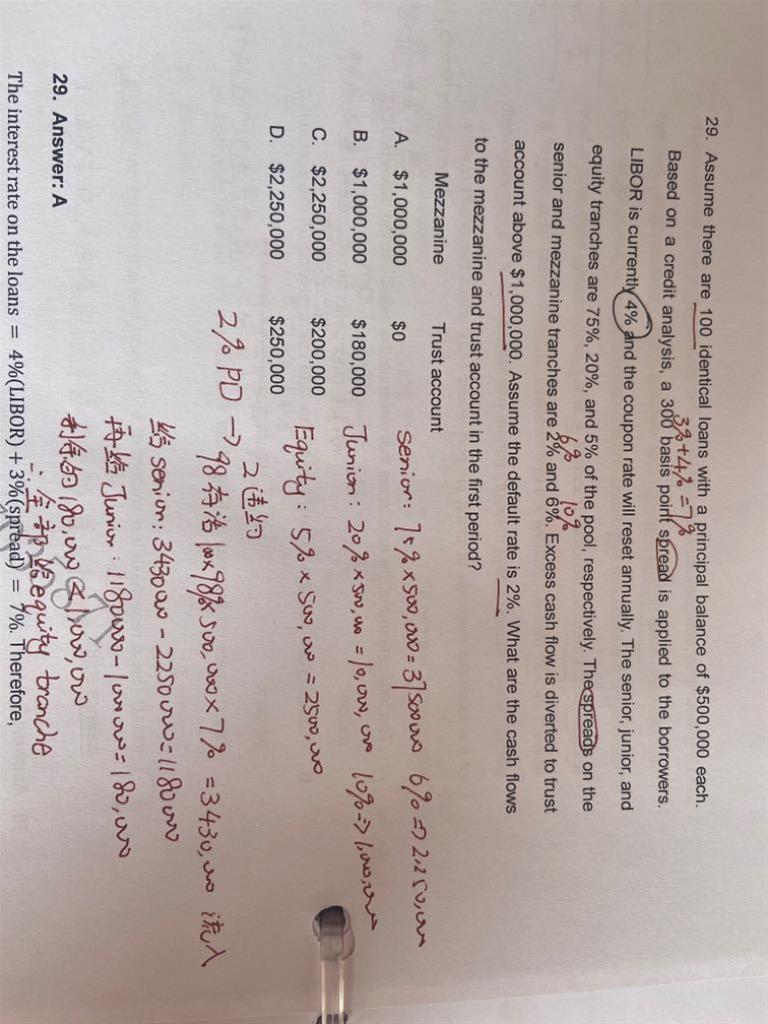 29. Assume there are 100 identical loans with a principal balance of $500,000 each.
3%+4%=7%
Based on a credit analysis, a 300 basis point spread is applied to the borrowers.
LIBOR is currently 4% and the coupon rate will reset annually. The senior, junior, and
equity tranches are 75%, 20%, and 5% of the pool, respectively. The spreads on the
6% 10%
senior and mezzanine tranches are 2% and 6%. Excess cash flow is diverted to trust
account above $1,000,000. Assume the default rate is 2%. What are the cash flows
to the mezzanine and trust account in the first period?
Mezzanine Trust account
A. $1,000,000 $0
Senior: 75%×500,000=3750000 6%=>2,250,000
B. $1,000,000 $180,000
Junior: 20%×500,000=10,000,000 10%=>1,000,000
C. $2,250,000 $200,000
Equity: 5%×500,000=2500,000
D. $2,250,000 $250,000
2违约
2% PD → 98存活 100×98%500,000×7%=3430,000 流入
给senior: 3430000-2250000=1180000
再给Junior: 1180000-1000000=180,000
180,000<1,000,000
∴全部给equity tranche
29. Answer: A
The interest rate on the loans = 4%(LIBOR) + 3%(spread) = 7%. Therefore,